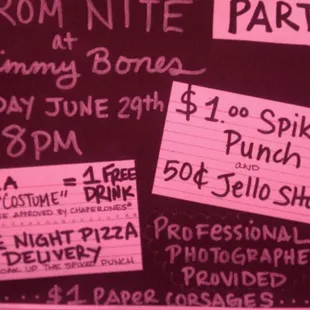 ROM NITE
PART
at
immy Bones
DAY JUNE 29th
8PM
$1.00 Spik
Punch
AND
50¢ Jello Sho
A = 1 FREE
"COSTUME" DRINK
BE APPROVED BY CHAPERONES*
E NIGHT PIZZA
DELIVERY
OAK UP THE SPIKED PUNCH
PROFESSIONAL
PHOTOGRAPHE
PROVIDED
$1 PAPER CORSAGES